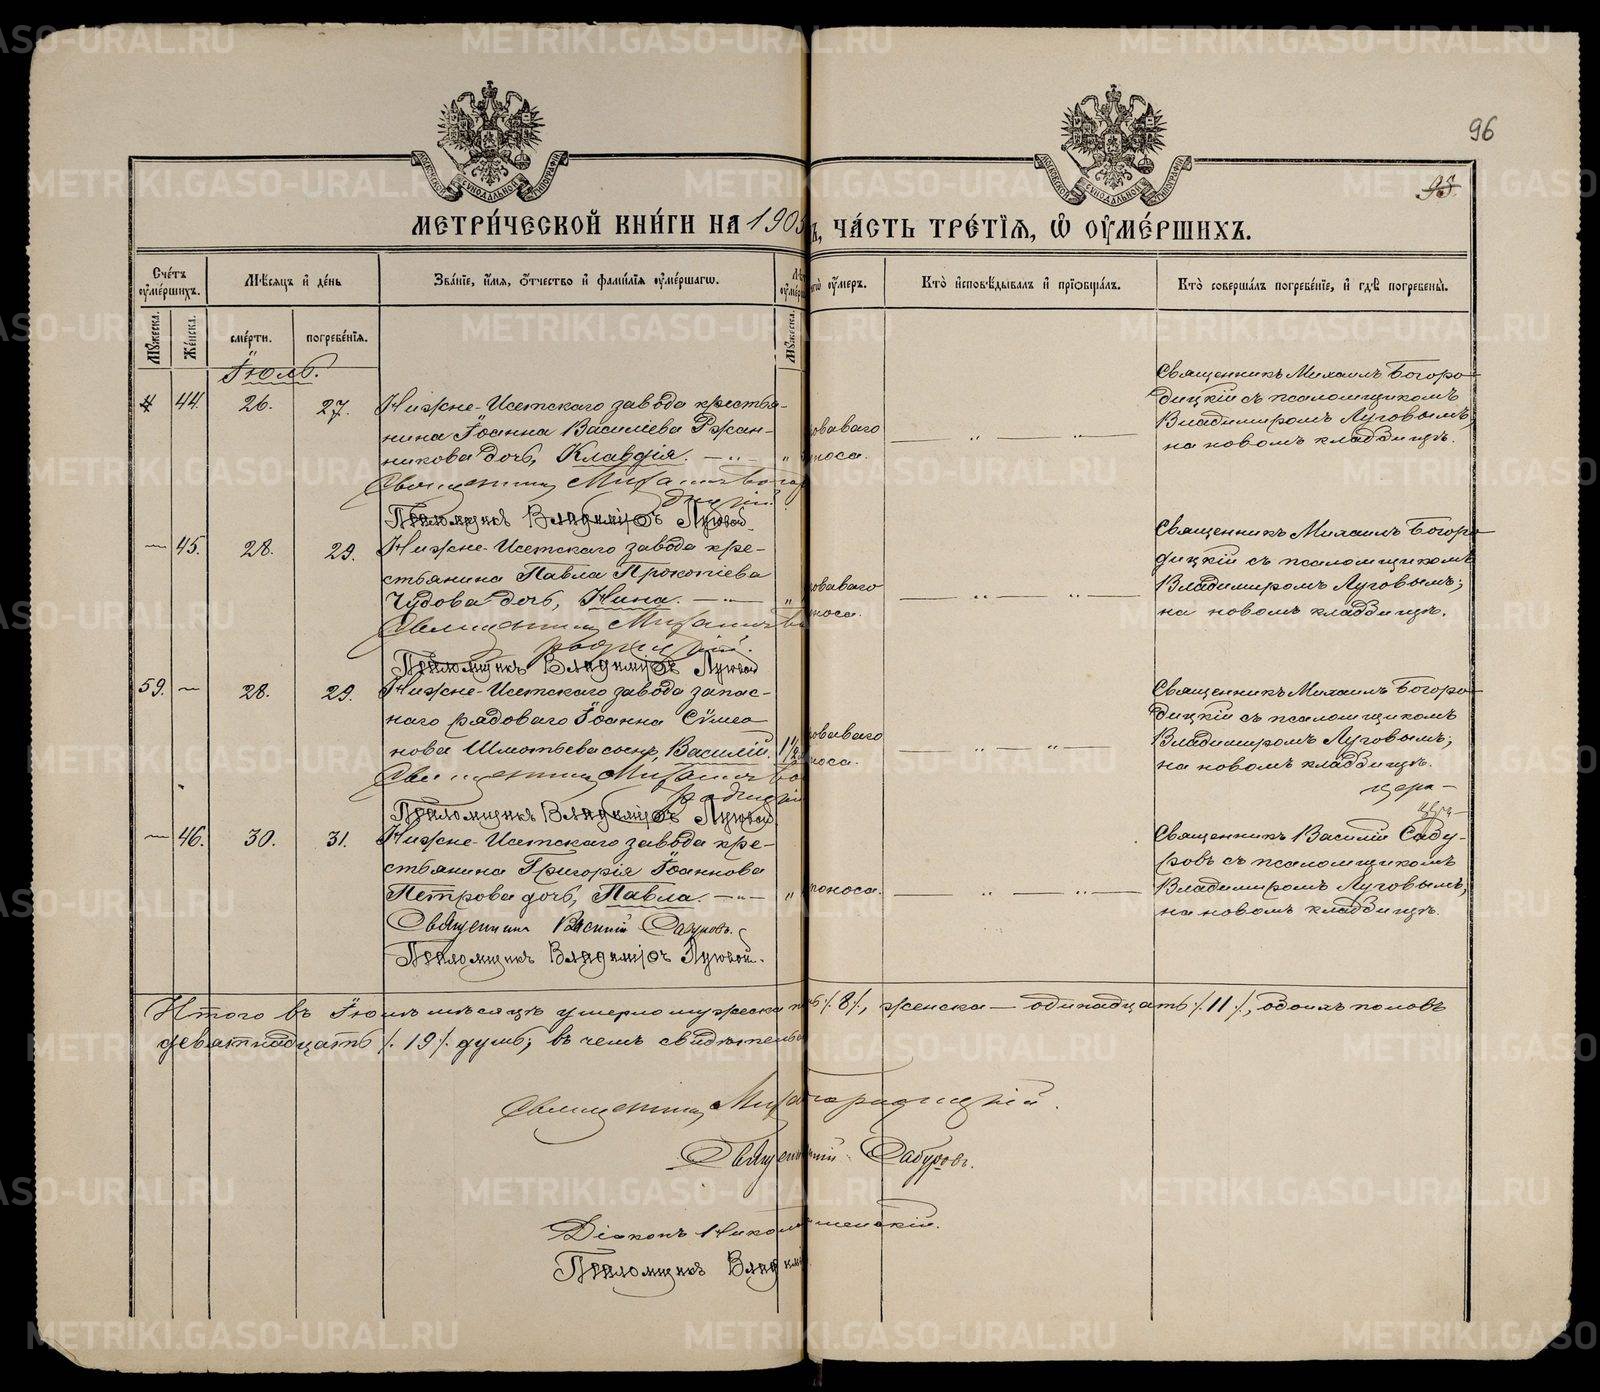 96
95
МЕТРИ́ЧЕСКОЙ КНИ́ГИ НА 1905
Ъ, ЧА́СТЬ ТРЕ́ТІѦ, Ѡ ОУ҆МЕ́РШИХЪ.
Сче́тъ оу҆ме́ршихъ.
Мѣ́сяцъ и҆ де́нь
Зва́ніе, и҆́мя, ѻ҆́тчество и҆ фами́лія оу҆ме́ршагѡ.
оу҆́меръ.
Кто̀ и҆сповѣ́дывалъ и҆ прїѡбща́лъ.
Кто̀ соверша́лъ погребе́ніе, и҆ гдѣ̀ погребены̀.
Мꙋ́жеска.
Же́нска.
сме́рти.
погребе́нія.
Мꙋ́жеска.
Іюль.
44.
26.
27.
Нижне-Исетскаго завода крестья-
нина Іоанна Василіева Ржан-
никова дочь, Клавдія.
Священникъ Михаилъ Богор
одицкій.
Псаломщикъ Владиміръ Луговой.
оваваго
носа.
Священникъ Михаилъ Богоро-
дицкій съ псаломщикомъ
Владимиромъ Луговымъ;
на новомъ кладбищѣ.
45.
28.
29.
Нижне-Исетскаго завода кре-
стьянина Павла Прокопіева
Чудова дочь, Нина.
Священникъ Михаилъ Бо
городицкій.
Псаломщикъ Владиміръ Луговой
оваваго
носа.
Священникъ Михаилъ Богоро-
дицкій съ псаломщикомъ
Владимиромъ Луговымъ;
на новомъ кладбищѣ.
59.
28.
29.
Нижне-Исетскаго завода запас-
наго рядоваго Іоанна Сѵмео
нова Шмотьева сынъ, Василій.
1 1/2
Священникъ Михаилъ Бо
городицкій
Псаломщикъ Владиміръ Луговой
оваваго
носа.
Священникъ Михаилъ Богоро-
дицкій съ псаломщикомъ
Владимиромъ Луговымъ;
на новомъ кладбищѣ.
46.
30.
31.
Нижне-Исетскаго завода кре-
стьянина Григорія Іоаннова
Петрова дочь, Павла.
Священникъ Василій Сабуровъ.
Псаломщикъ Владиміръ Луговой.
поноса.
Священникъ Василій Сабу-
ровъ съ псаломщикомъ
Владимиромъ Луговымъ,
на новомъ кладбищѣ.
Итого въ Іюлѣ мѣсяцѣ умерло мужеска /8/, женска — одинадцать /11/, обоихъ половъ
девятнадцать /19/ душъ; въ чемъ свидѣтельс
Священникъ Миха городицкій.
Священ Сабуровъ.
Діаконъ Никол
Псаломщикъ Влади
METRIKI.GASO-URAL.RU